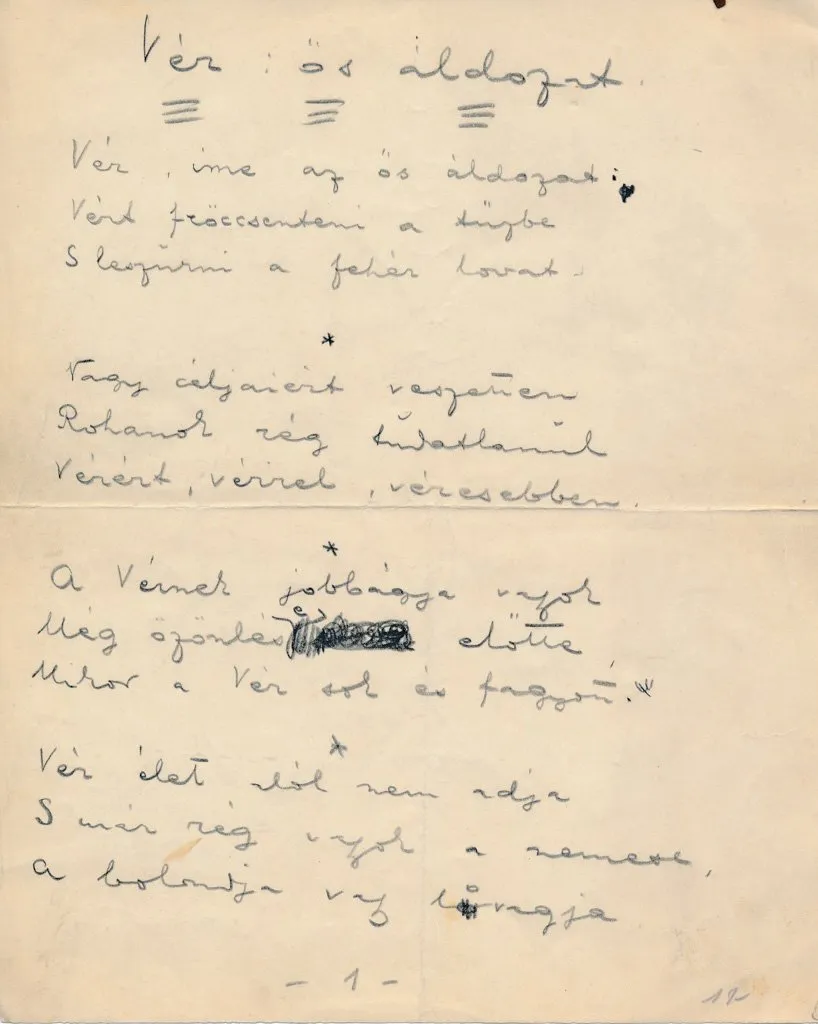 Vér: ős áldozat.
Vér, ime az ős áldozat:
Vért fröccsenteni a tüzbe
S leszúrni a fehér lovat.
*
Nagy céljaiért veszetten
Rohanok rég tudatlanúl
Vérért, vérrel, véresebben.
*
A Vérnek jobbágya vagyok
Még özönlése előtte,
Mikor a Vér sok és fagyott.
*
Vér élet alól nem adja
S már rég vagyok a nemese,
A bolondja vagy lovagja
- 1 -
12